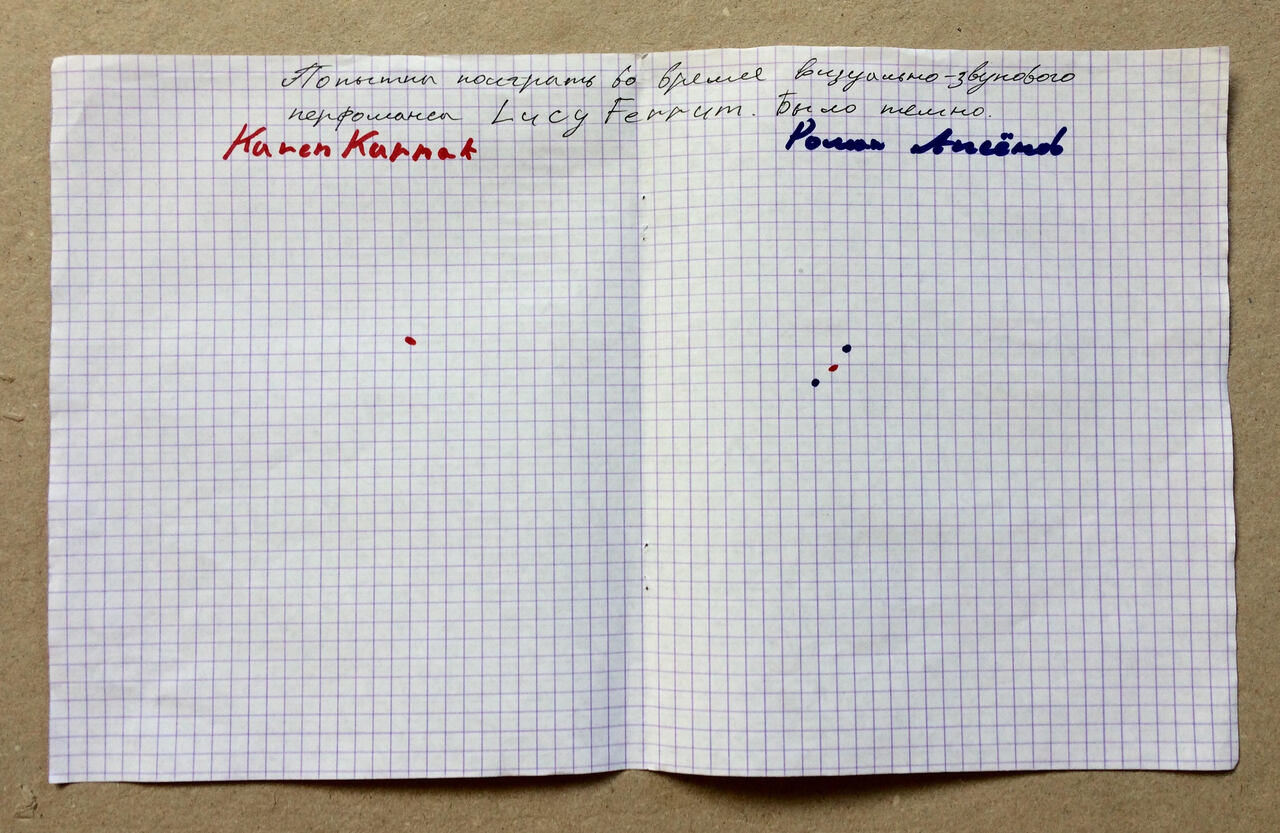 Попытка поиграть во время визуально-звукового
перфоманса Lucy Ferrum. Было темно.
Karen Karnak
Роман Аксёнов